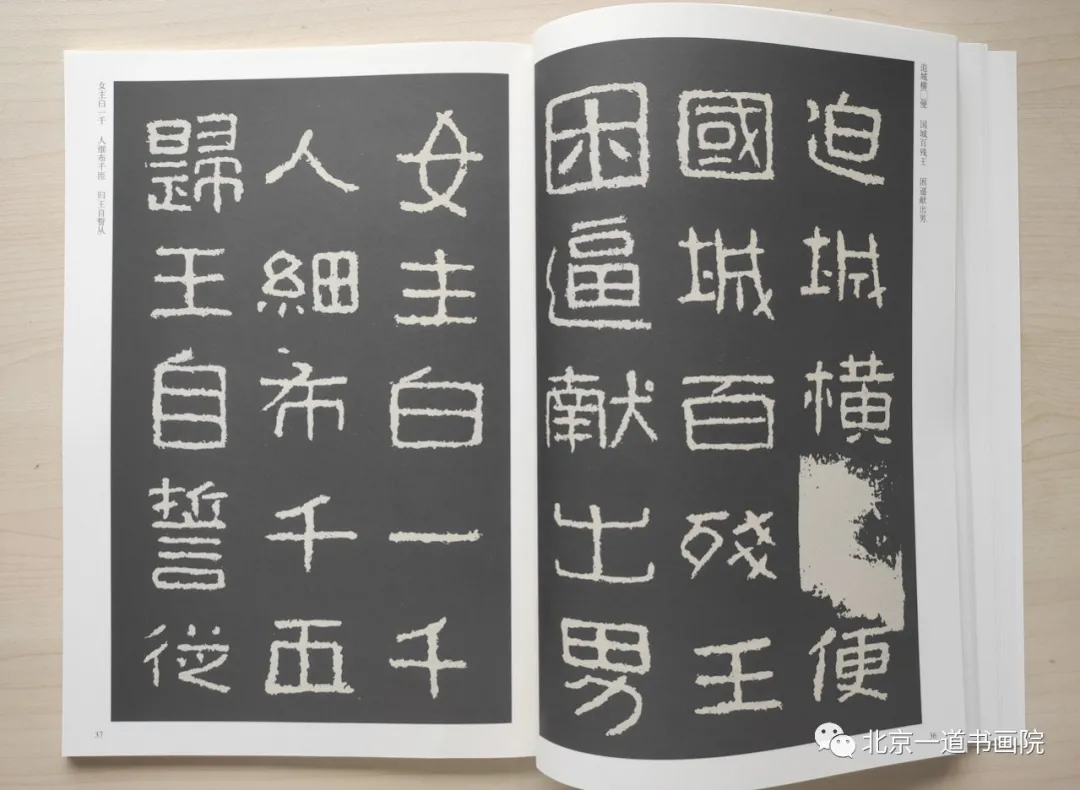 迫城横□便 国城百残王 困逼献出男
迫城橫便
國城百殘王
困逼獻出男
36
女主白一千
人細布千匝
歸王自誓從
女主白一千 人细布千匝 归王自誓从
37
北京一道书画院